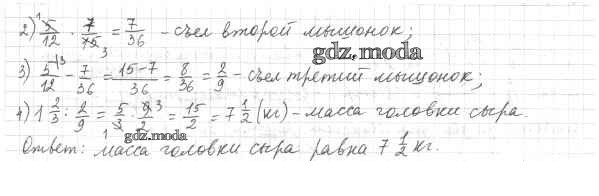 2) 5/12 · 7/15 = 7/36 - съел второй мышонок;
gdz.moda
3) 5/12 - 7/36 = 15-7/36 = 8/36 = 2/9 - съел третий мышонок;
4) 1 2/3 : 2/9 = 5/3 · 9/2 = 15/2 = 7 1/2 (кг) - масса головки сыра.
gdz.moda
Ответ: масса головки сыра равна 7 1/2 кг.